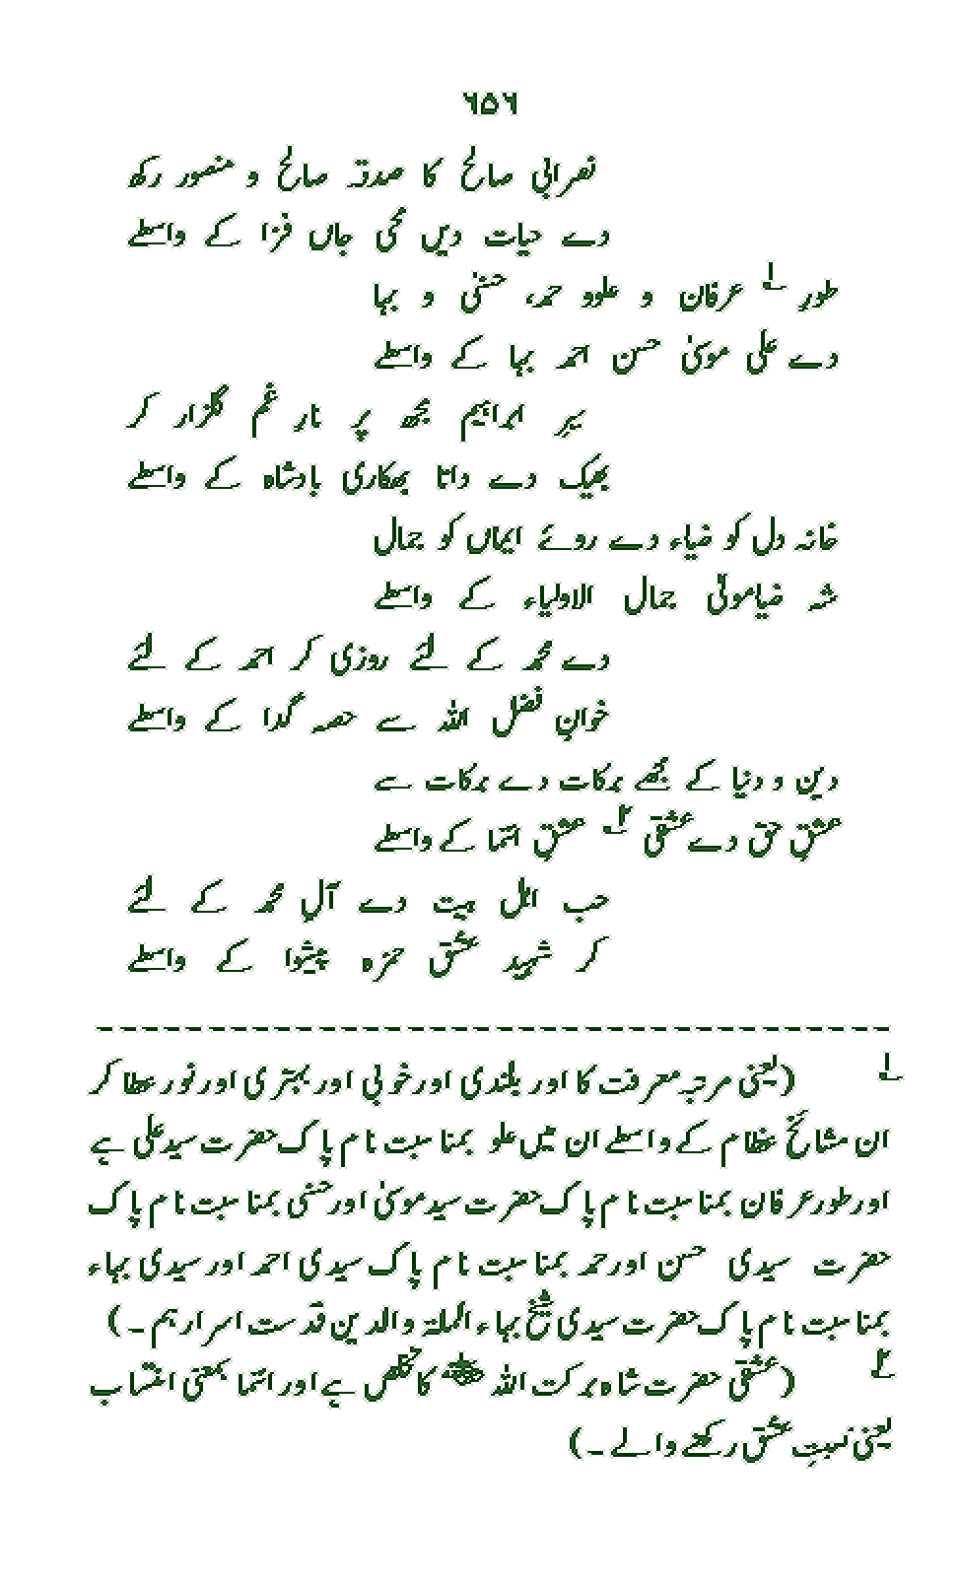 ٦٥٦
نصرابی صالح کا صدقہ صالح و منصور رکھ
دے حیات دیں محی جاں فزا کے واسطے
طورِ ۱؎ عرفان و علوو حمد، حسنیٰ و بہا
دے علی موسیٰ حسن احمد بہا کے واسطے
بہرِ ابراہیم مجھ پر نارِ غم گلزار کر
بھیک دے داتا بھکاری بادشاہ کے واسطے
خانہ دل کو ضیاء دے روئے ایماں کو جمال
شہ ضیا مولیٰ جمال الاولیاء کے واسطے
دے محمد کے لئے روزی کر احمد کے لئے
خوانِ فضل اللہ سے حصہ گدا کے واسطے
دین و دنیا کے مجھے برکات دے برکات سے
عشقِ حق دے عشقی ۲؎ عشقِ انتما کے واسطے
حب اہل بیت دے آلِ محمد کے لئے
کر شہید عشق حمزہ پیشوا کے واسطے
۱؎ (یعنی مرتبہ معرفت کا اور بلندی اور خوبی اور بہتری اور نور عطا کر
ان مشائخ عظام کے واسطے ان میں علو بمناسبت نام پاک حضرت سید علی ہے
اور طور عرفان بمناسبت نام پاک حضرت سید موسیٰ اور حسنی بمناسبت نام پاک
حضرت سیدی حسن اور حمد بمناسبت نام پاک سیدی احمد اور سیدی بہاء
بمناسبت نام پاک حضرت سیدی شیخ بہاء الملۃ والدین قدست اسرارہم۔)
۲؎ (عشقی حضرت شاہ برکت اللہ ﷫ کا تخلص ہے اور انتما بمعنی انتساب
یعنی نسبتِ عشق رکھنے والے۔)